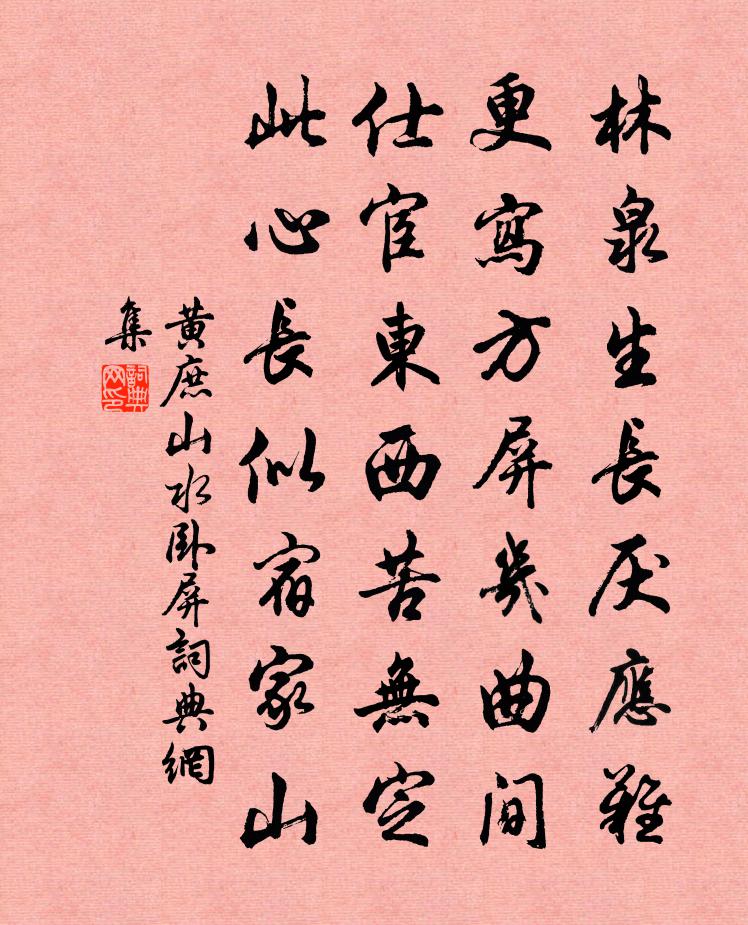 林泉生長厌應難
更寫方屏幾曲間
仕宦東西苦無定
此心長似宿家山
黃庶山水卧屏詞典網
集
詞典
网印